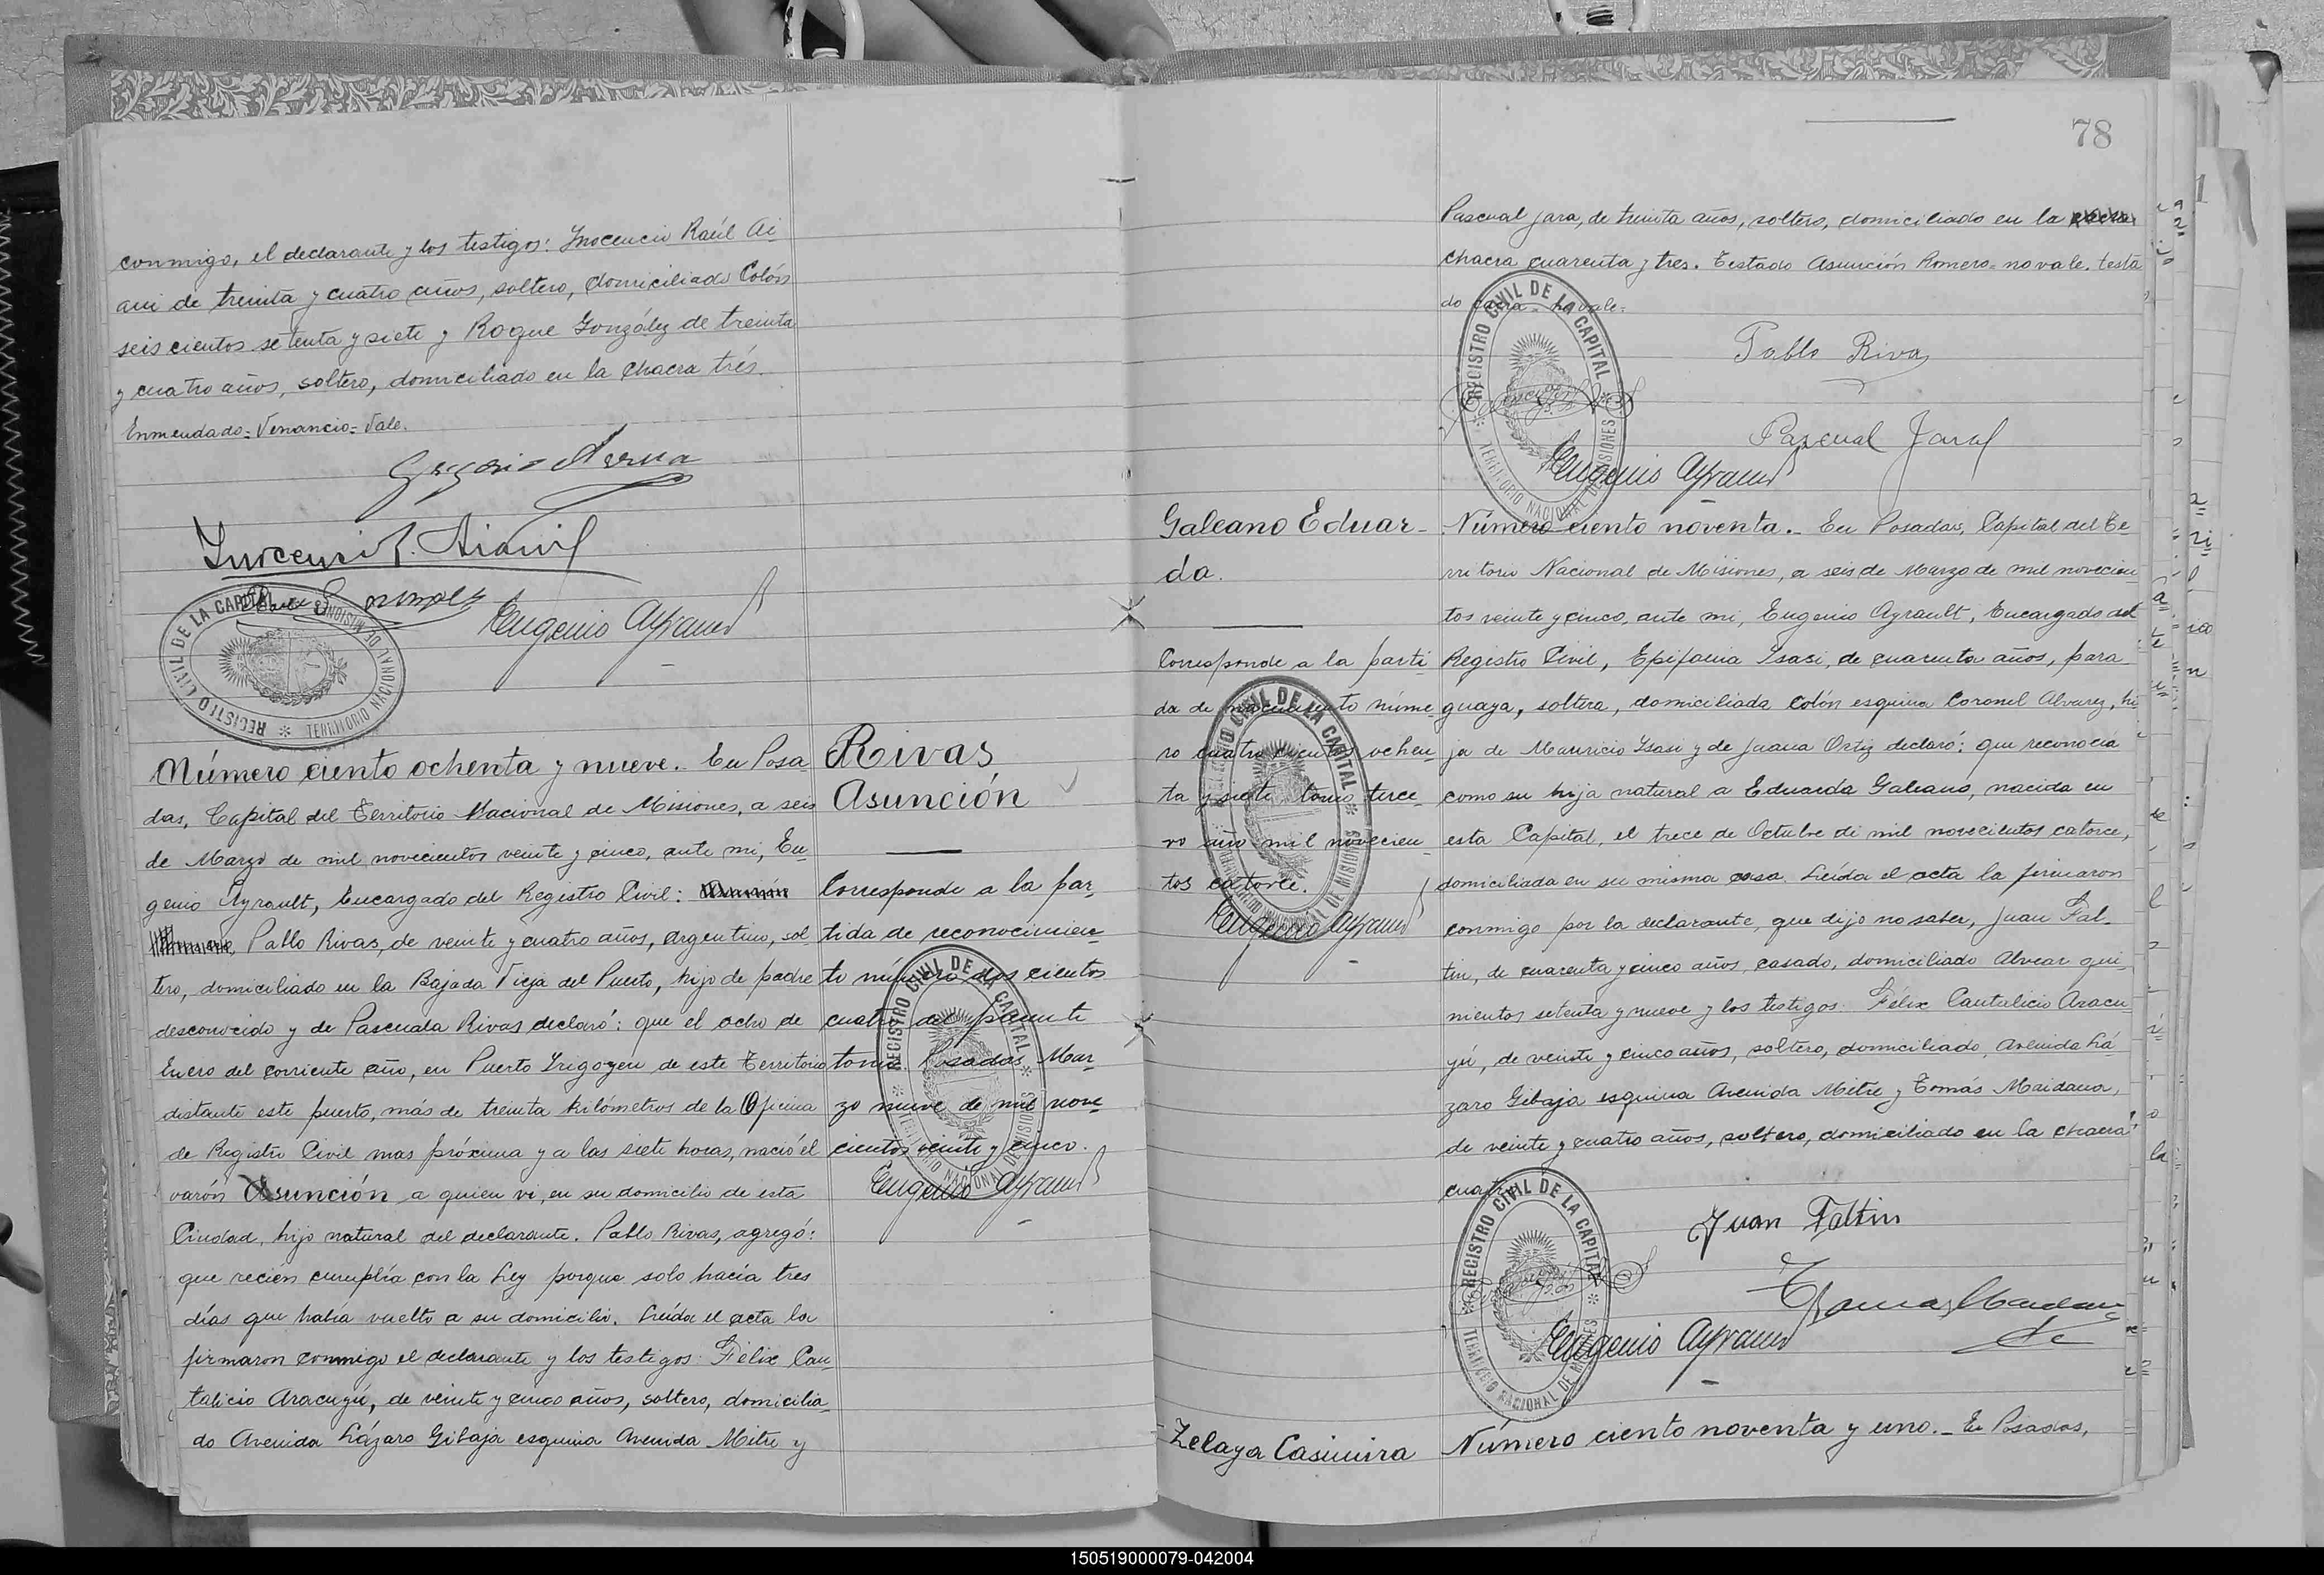 conmigo, el declarante y los testigos: Inocencio Raúl Ai
avi de treinta y cuatro años, soltero, domiciliado Colón
seis cientos setenta y siete y Roque González de treinta
y cuatro años, soltero, domiciliado en la chacra trés.
Enmendado=Venancio=Vale.
Eugenio Ayrault
REGISTRO CIVIL DE LA CAPITAL
TERRITORIO NACIONAL DE MISIONES
Número ciento ochenta y nueve. En Posa
das, Capital del Territorio Nacional de Misiones, a seis
de Marzo de mil novecientos veinte y cinco, ante mi, Eu
genio Ayrault, Encargado del Registro Civil:
Pablo Rivas, de veinte y cuatro años, argentino, sol
tero, domiciliado en la Bajada Vieja del Puerto, hijo de padre
desconocido y de Pascuala Rivas declaró: que el ocho de
Enero del corriente año, en Puerto Irigoyen de este Territorio
distante este puerto, más de treinta kilómetros de la Oficina
de Registro Civil mas próxima y a las siete horas, nació el
varón Asunción a quien vi, en su domicilio de esta
Ciudad, hijo natural del declarante. Pablo Rivas, agregó:
que recien cumplía con la Ley porque solo hacía tres
días que había vuelto a su domicilio. Leída el acta la
firmaron conmigo el declarante y los testigos: Félix Can
talicio Aracuyú, de veinte y cinco años, soltero, domicilia
do Avenida Lázaro Gibaja esquina Avenida Mitre y
Rivas
Asunción
Corresponde a la par
tida de reconocimien
to número dos cientos
cuatro del presente
tomo. Posadas Mar
zo nueve de mil nove
cientos veinte y cinco.
Eugenio Ayrault
REGISTRO CIVIL DE LA CAPITAL
TERRITORIO NACIONAL DE MISIONES
78
Pascual Jara, de treinta años, soltero, domiciliado en la
chacra cuarenta y tres. Testado Asunción Romero=no vale. testa
do cacra=no vale=
Pablo Rivas
Pascual Jara
Eugenio Ayrault
REGISTRO CIVIL DE LA CAPITAL
TERRITORIO NACIONAL DE MISIONES
Galeano Eduar
da.
Corresponde a la parti
da de nacimiento núme
ro cuatro cientos ochen
ta y siete tomo terce
ro año mil novecien
tos catorce.
Eugenio Ayrault
REGISTRO CIVIL DE LA CAPITAL
TERRITORIO NACIONAL DE MISIONES
Número ciento noventa. En Posadas, Capital del Te
rritorio Nacional de Misiones, a seis de Marzo de mil novecien
tos veinte y cinco, ante mi, Eugenio Ayrault, Encargado del
Registro Civil, Epifania Isasi, de cuarenta años, para
guaya, soltera, domiciliada Colón esquina Coronel Alvarez, hi
ja de Mauricio Isasi y de Juana Ortiz declaró: que reconocía
como su hija natural a Eduarda Galeano, nacida en
esta Capital, el trece de Octubre de mil novecientos catorce,
domiciliada en su misma casa. Leída el acta la firmaron
conmigo por la declarante, que dijo no saber, Juan Fal
tin, de cuarenta y cinco años, casado, domiciliado Alvear qui
nientos setenta y nueve y los testigos: Félix Cantalicio Aracu
yú, de veinte y cinco años, soltero, domiciliado, Avenida Lá
zaro Gibaja esquina Avenida Mitre y Tomás Maidana,
de veinte y cuatro años, soltero, domiciliado en la chacra
cuatro.
Juan Faltin
Eugenio Ayrault
REGISTRO CIVIL DE LA CAPITAL
TERRITORIO NACIONAL DE MISIONES
Zelaya Casimira
Número ciento noventa y uno. En Posadas,
150519000079-042004